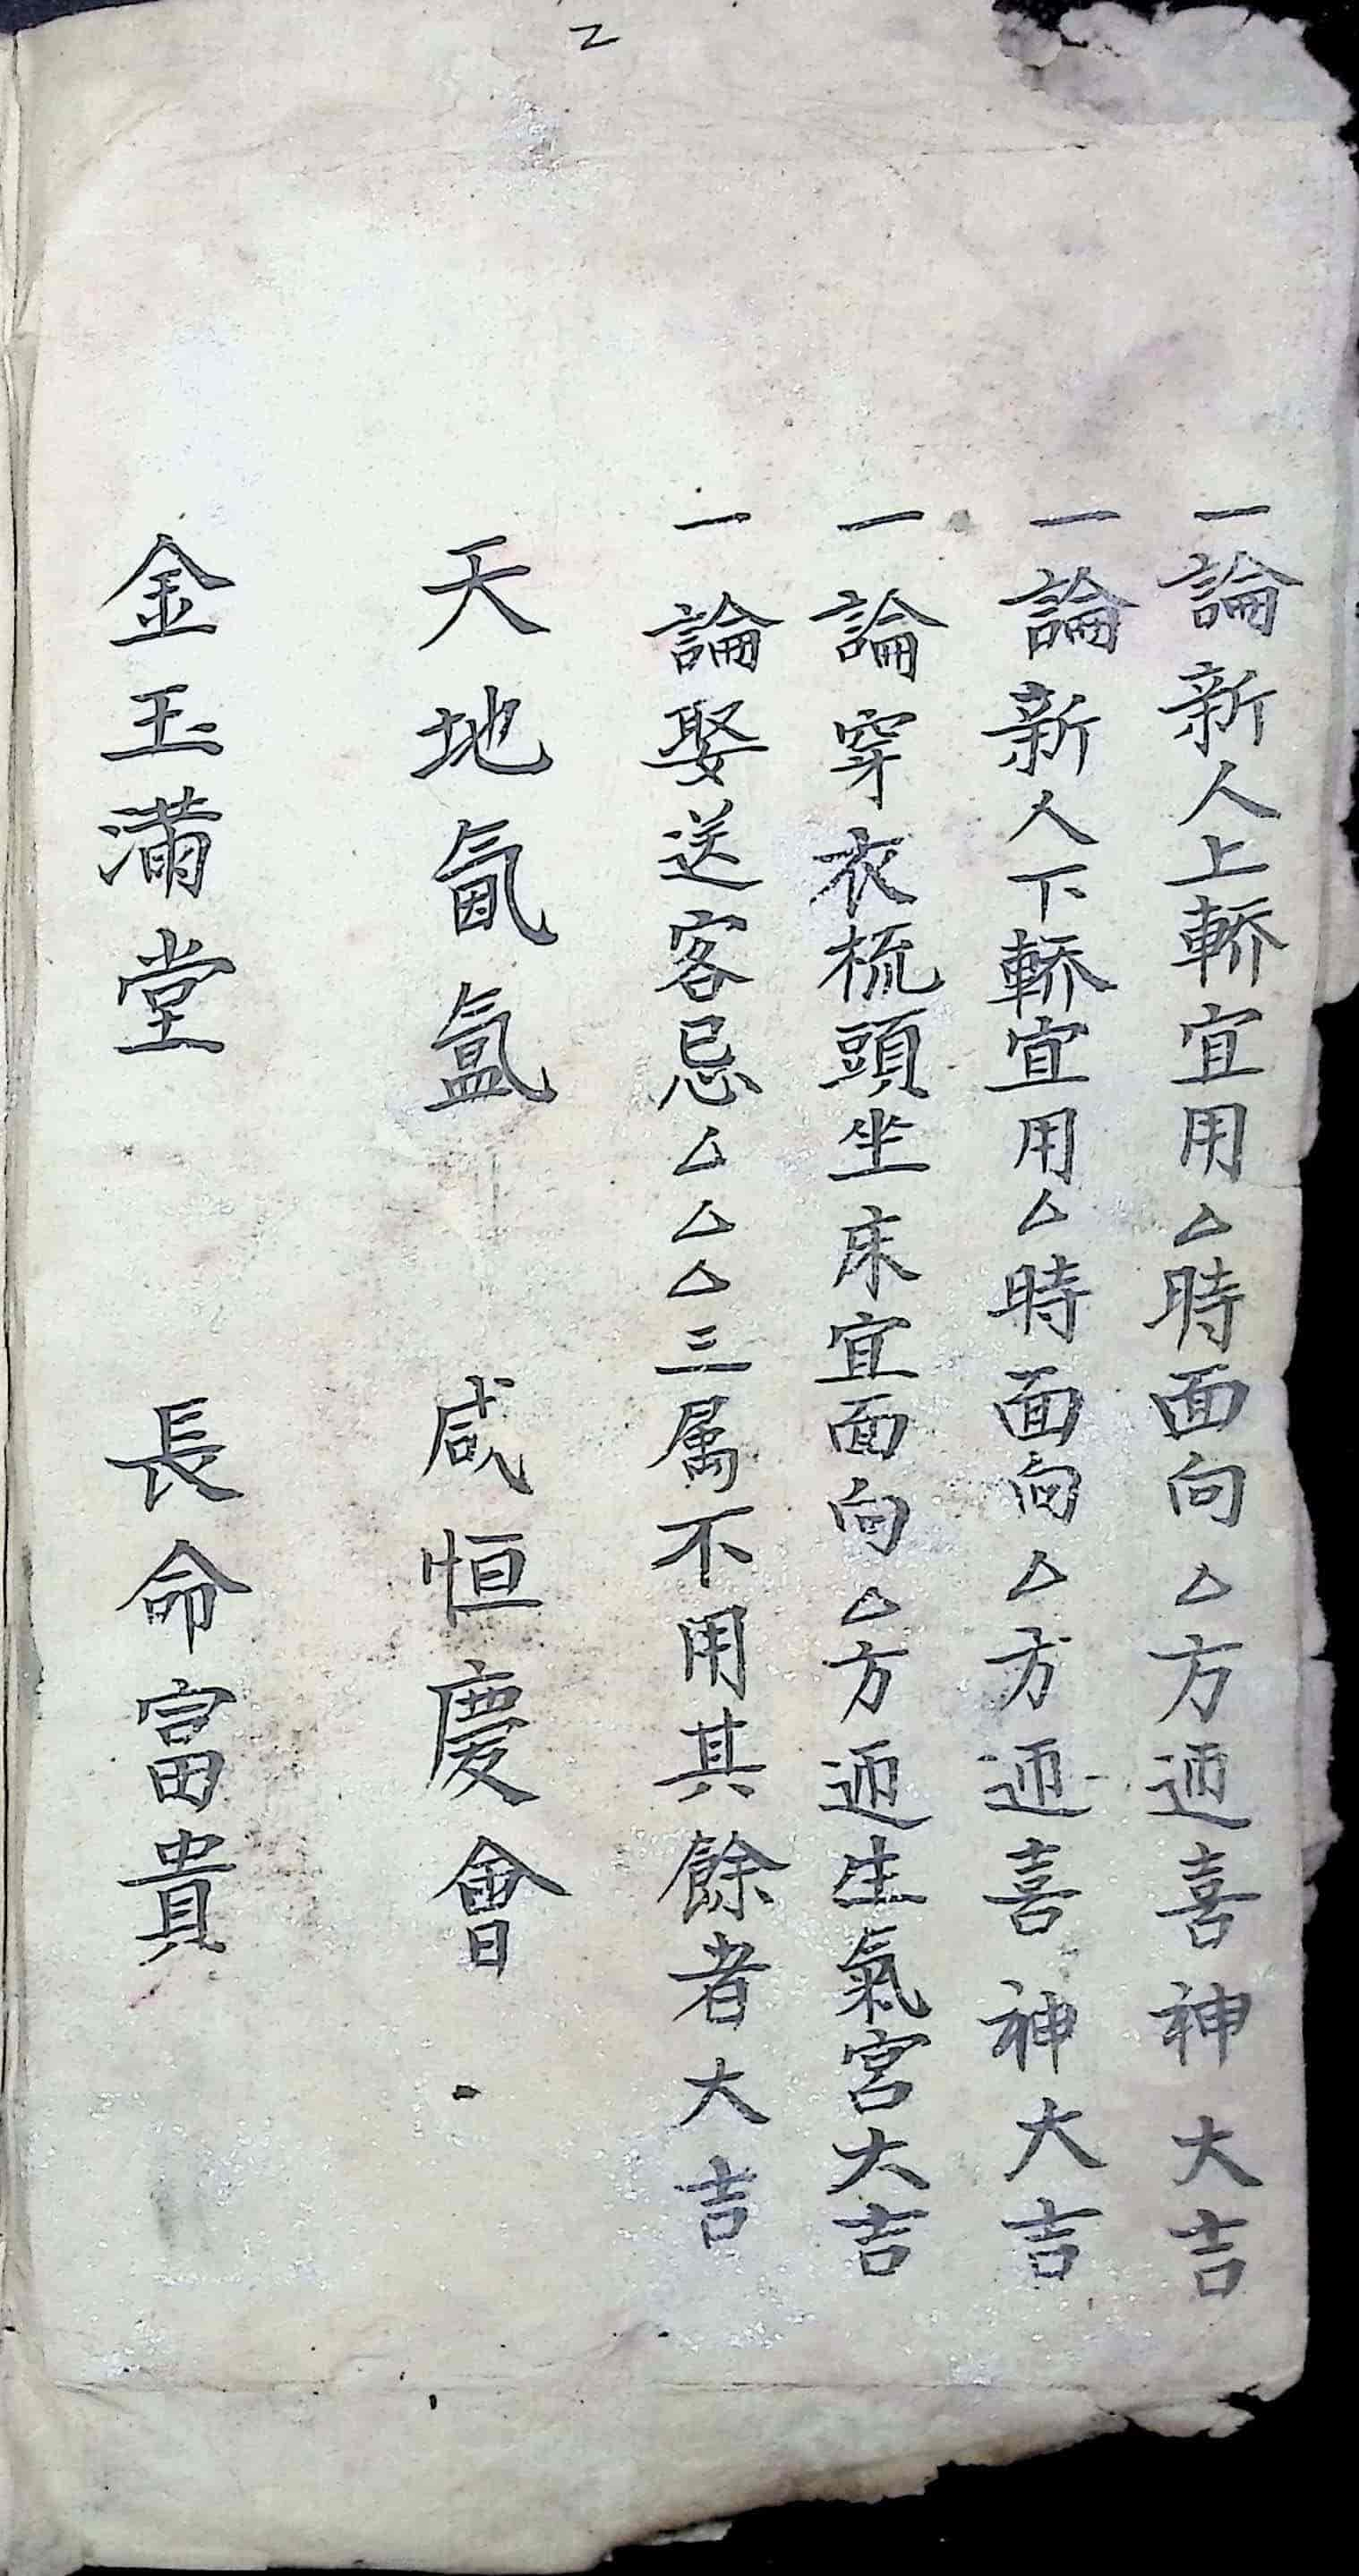 2
一論新人上轎宜用厶時面向厶方迊喜神大吉
一論新人下轎宜用厶時面向厶方迊喜神大吉
一論穿衣梳頭坐床宜面向厶方迊生氣宮大吉
一論娶送客忌厶厶厶三属不用其餘者大吉
天地氤氲 咸恒慶會
金玉滿堂 長命富貴